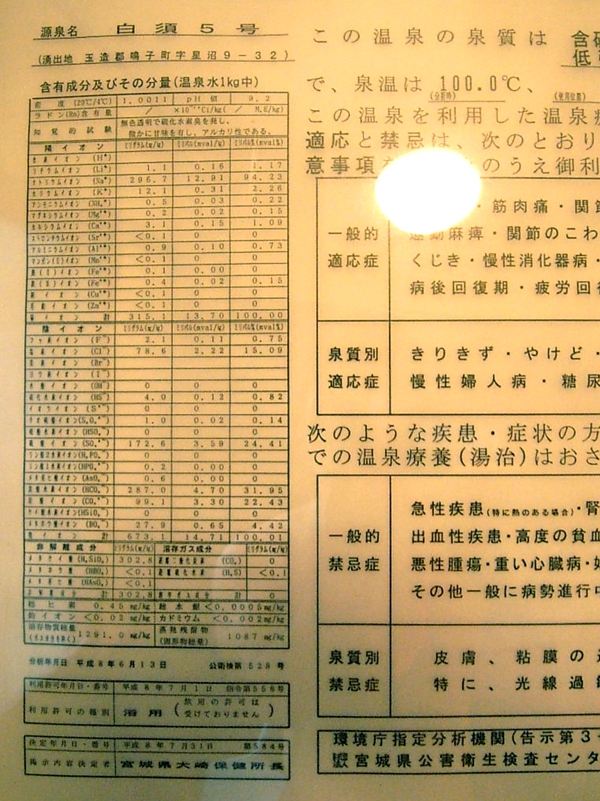 源泉名 白須5号
(湧出地 玉造郡鳴子町字星沼9－32)
含有成分及びその分量(温泉水1kg中)
密度(20℃/4℃) 1.0011 pH値 9.2
ラドン(Rn)含有量 ×10⁻¹⁰Ci/kg( M.E/kg)
知覚的試験 無色透明で硫化水素臭を発し、
微かに甘味を有し、アルカリ性である。
陽イオン ミリグラム(mg/kg) ミリバル(mval/kg) ミリバル%(mval%)
水素イオン (H⁺)
リチウムイオン (Li⁺) 1.1 0.16 1.17
ナトリウムイオン (Na⁺) 296.7 12.91 94.23
カリウムイオン (K⁺) 12.1 0.31 2.26
アンモニウムイオン (NH₄⁺) 0.5 0.03 0.22
マグネシウムイオン (Mg²⁺) 0.2 0.02 0.15
カルシウムイオン (Ca²⁺) 3.1 0.15 1.09
ストロンチウムイオン (Sr²⁺) <0.1 0 0
アルミニウムイオン (Al³⁺) 0.9 0.10 0.73
マンガン(Ⅱ)イオン (Mn²⁺) <0.1 0 0
鉄(Ⅱ)イオン (Fe²⁺) 0.1 0.00 0
鉄(Ⅲ)イオン (Fe³⁺) 0.4 0.02 0.15
銅イオン (Cu²⁺) <0.1 0 0
亜鉛イオン (Zn²⁺) <0.1 0 0
陽イオン 計 315.1 13.70 100.00
陰イオン ミリグラム(mg/kg) ミリバル(mval/kg) ミリバル%(mval%)
フッ素イオン (F⁻) 2.1 0.11 0.75
塩素イオン (Cl⁻) 78.6 2.22 15.09
臭素イオン (Br⁻)
ヨウ素イオン (I⁻)
水酸イオン (OH⁻) 0 0 0
硫化水素イオン (HS⁻) 4.0 0.12 0.82
イオウイオン (S²⁻) 0 0 0
チオ硫酸イオン (S₂O₃²⁻) 1.0 0.02 0.14
硫酸水素イオン (HSO₄⁻) 0 0 0
硫酸イオン (SO₄²⁻) 172.6 3.59 24.41
リン酸2水素イオン (H₂PO₄⁻) 0 0 0
リン酸1水素イオン (HPO₄²⁻) 0.2 0.00 0
メタ亜ヒ酸イオン (AsO₂⁻) 0.6 0.00 0
炭酸水素イオン (HCO₃⁻) 287.0 4.70 31.95
炭酸イオン (CO₃²⁻) 99.1 3.30 22.43
メタケイ酸水素イオン (HSiO₃⁻) 0 0 0
メタホウ酸イオン (BO₂⁻) 27.9 0.65 4.42
陰イオン 計 673.1 14.71 100.01
非解離成分 ミリグラム(mg/kg) 溶存ガス成分 ミリグラム(mg/kg)
メタケイ酸 (H₂SiO₃) 302.8 遊離二酸化炭素 (CO₂) 0
メタホウ酸 (HBO₂) <0.1 遊離硫化水素 (H₂S) <0.1
メタ亜ヒ酸 (HAsO₂) <0.1
非解離成分 計 302.8 溶存ガス成分 計 0
総ヒ素 0.45 mg/kg 総水銀 <0.0005mg/kg
鉛イオン <0.02 mg/kg カドミウム <0.002mg/kg
溶存物質総量
(ガス性のものを除く) 1291.0 mg/kg 蒸発残留物
(固形物総量) 1087 mg/kg
分析年月日 平成8年6月13日 公衛検第528号
利用許可年月日・番号 平成8年7月1日 指令第556号
利用許可の種別 浴用 (飲用の許可は
受けておりません)
決定年月日・番号 平成8年7月31日 第584号
掲示内容決定者 宮城県大崎保健所長
この温泉の泉質は 含硫
低張
で、泉温は 100.0℃、
(分析時) (使用位置)
この温泉を利用した温泉療
適応と禁忌は、次のとおり
意事項を のうえ御利
一般的
適応症
・筋肉痛・関節
運動麻痺・関節のこわ
くじき・慢性消化器病・
病後回復期・疲労回復
泉質別
適応症
きりきず・やけど・
慢性婦人病・糖尿
次のような疾患・症状の方
での温泉療養(湯治)はおさ
一般的
禁忌症
急性疾患(特に熱のある場合)・腎
出血性疾患・高度の貧血
悪性腫瘍・重い心臓病・
その他一般に病勢進行中
泉質別
禁忌症
皮膚、粘膜の過
特に、光線過敏
環境庁指定分析機関(告示第3
宮城県公害衛生検査センタ